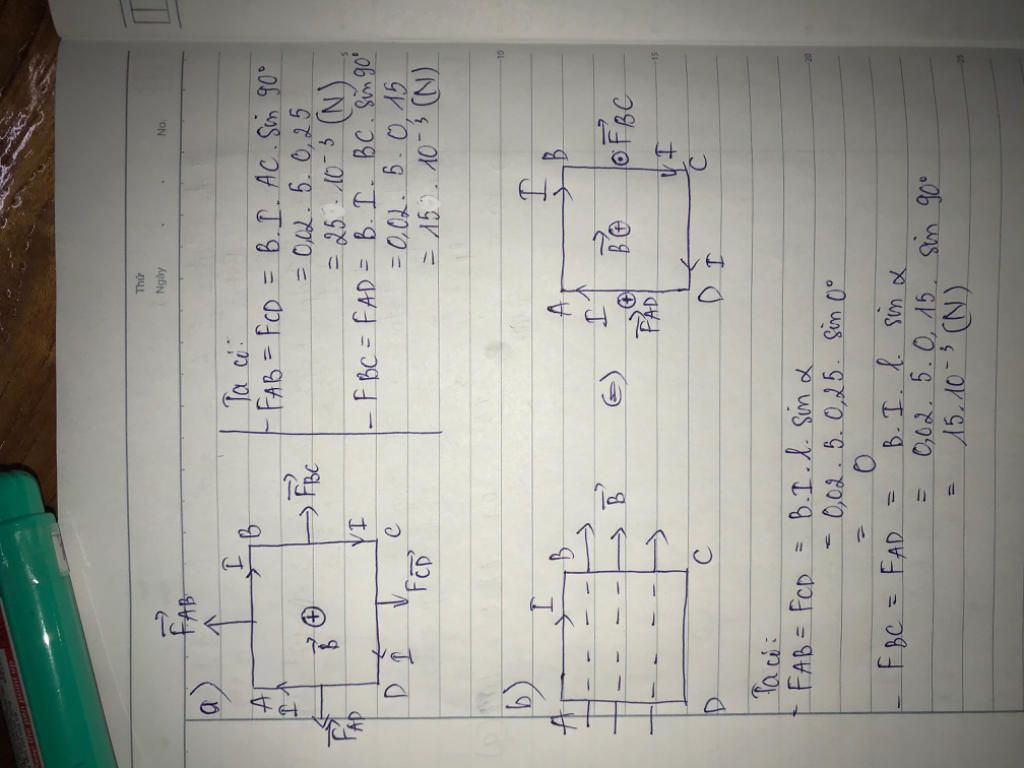 Thứ
Ngày
No.
a)
F⃗AB
A
I
B
I
F⃗AD
B⃗ ⊕
F⃗BC
I
D
I
C
F⃗CD
Ta có:
- FAB = FCD = B.I.AC.sin 90°
= 0,02.5.0,25
= 25.10⁻³ (N)
- FBC = FAD = B.I.BC.sin 90°
= 0,02.5.0,15
= 15.10⁻³ (N)
5
10
15
20
25
b)
A
I
B
B⃗
D
C
(=)
A
I
B
I
B⃗ ⊕
F⃗AD ⊕
⊙ F⃗BC
I
D
I
C
Ta có:
- FAB = FCD = B.I.l.sin α
= 0,02.5.0,25.sin 0°
= 0
- FBC = FAD = B.I.l.sin α
= 0,02.5.0,15.sin 90°
= 15.10⁻³ (N)